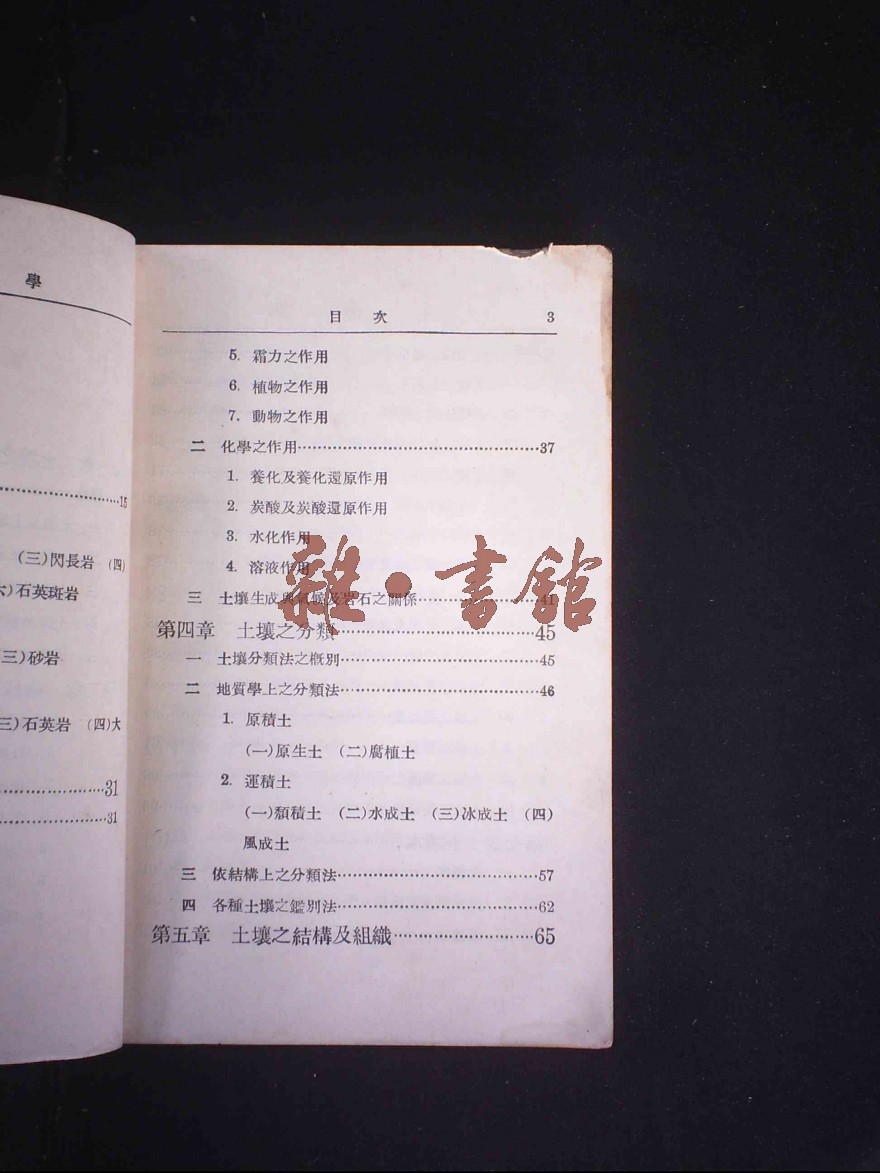 學
15
(三)閃長岩 (四)
六)石英斑岩
三)砂岩
三)石英岩 (四)大
31
31
目 次 3
5. 霜力之作用
6. 植物之作用
7. 動物之作用
二 化學之作用 37
1. 養化及養化還原作用
2. 炭酸及炭酸還原作用
3. 水化作用
4. 溶液作用
三 土壤生成與氣候及岩石之關係 41
第四章 土壤之分類 45
一 土壤分類法之概別 45
二 地質學上之分類法 46
1. 原積土
(一)原生土 (二)腐植土
2. 運積土
(一)頹積土 (二)水成土 (三)冰成土 (四)
風成土
三 依結構上之分類法 57
四 各種土壤之鑑別法 62
第五章 土壤之結構及組織 65
雜·書館